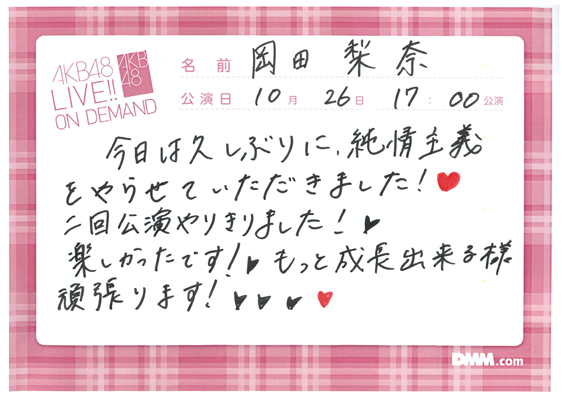 AKB48
LIVE!!
ON DEMAND
AKB
48
名前 岡田 梨奈
公演日 10月 26日 17:00公演
今日は久しぶりに、純情主義
をやらせていただきました!♥
二回公演やりきりました!♥
楽しかったです!♥もっと成長出来る様
頑張ります!♥♥♥♥
DMM.com